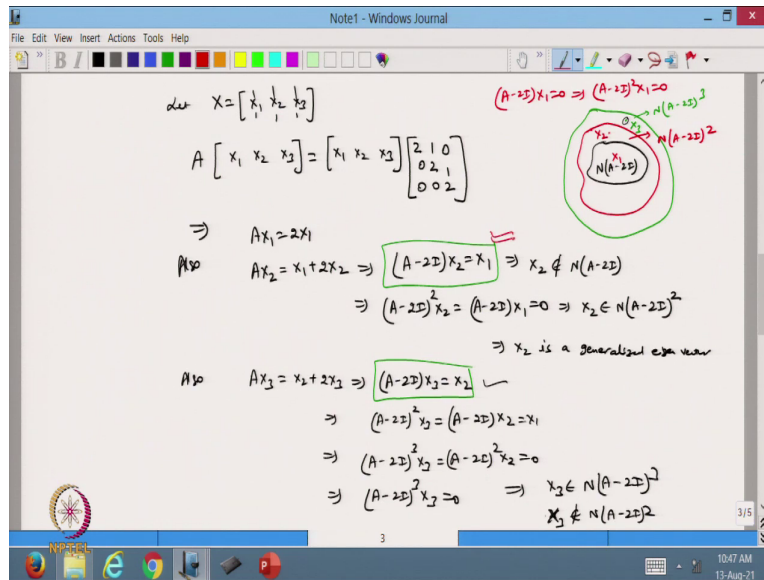 Note1 - Windows Journal
File Edit View Insert Actions Tools Help
Let X = [x₁ x₂ x₃]
(A-2I)x₁=0 ⇒ (A-2I)²x₁=0
N(A-2I)³
x₃
x₂
N(A-2I)²
x₁
N(A-2I)
A [x₁ x₂ x₃] = [x₁ x₂ x₃] [2 1 0
0 2 1
0 0 2]
⇒ Ax₁=2x₁
Also Ax₂ = x₁+2x₂ ⇒ (A-2I)x₂=x₁ ⇒ x₂ ∉ N(A-2I)
⇒ (A-2I)²x₂ = (A-2I)x₁=0 ⇒ x₂ ∈ N(A-2I)²
⇒ x₂ is a generalized eigen vector
Also Ax₃ = x₂+2x₃ ⇒ (A-2I)x₃=x₂
⇒ (A-2I)²x₃=(A-2I)x₂=x₁
⇒ (A-2I)³x₃=(A-2I)²x₂=0
⇒ (A-2I)³x₃=0 ⇒ x₃ ∈ N(A-2I)³
x₃ ∉ N(A-2I)²
3/5
3
NPTEL
10:47 AM
13-Aug-21